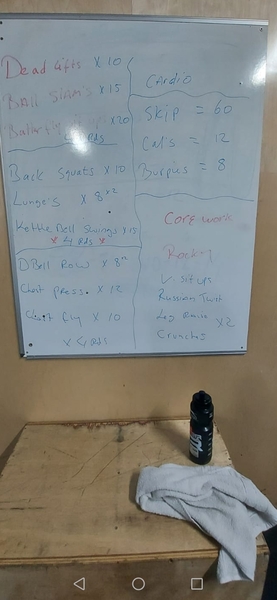 Dead lifts x 10
Ball Slams x 15
x20
Back Squats x 10
Lunge's x 8 x2
Kettle Bell Swings x 15
* 4 rds *
DBell Row x 8
Chest press. x 12
Chest Fly x 10
x 4 rds
Cardio
Skip = 60
Cal's = 12
Burpies = 8
Core work
V situps
Russian Twist
Leg Raise
x2
Crunchs